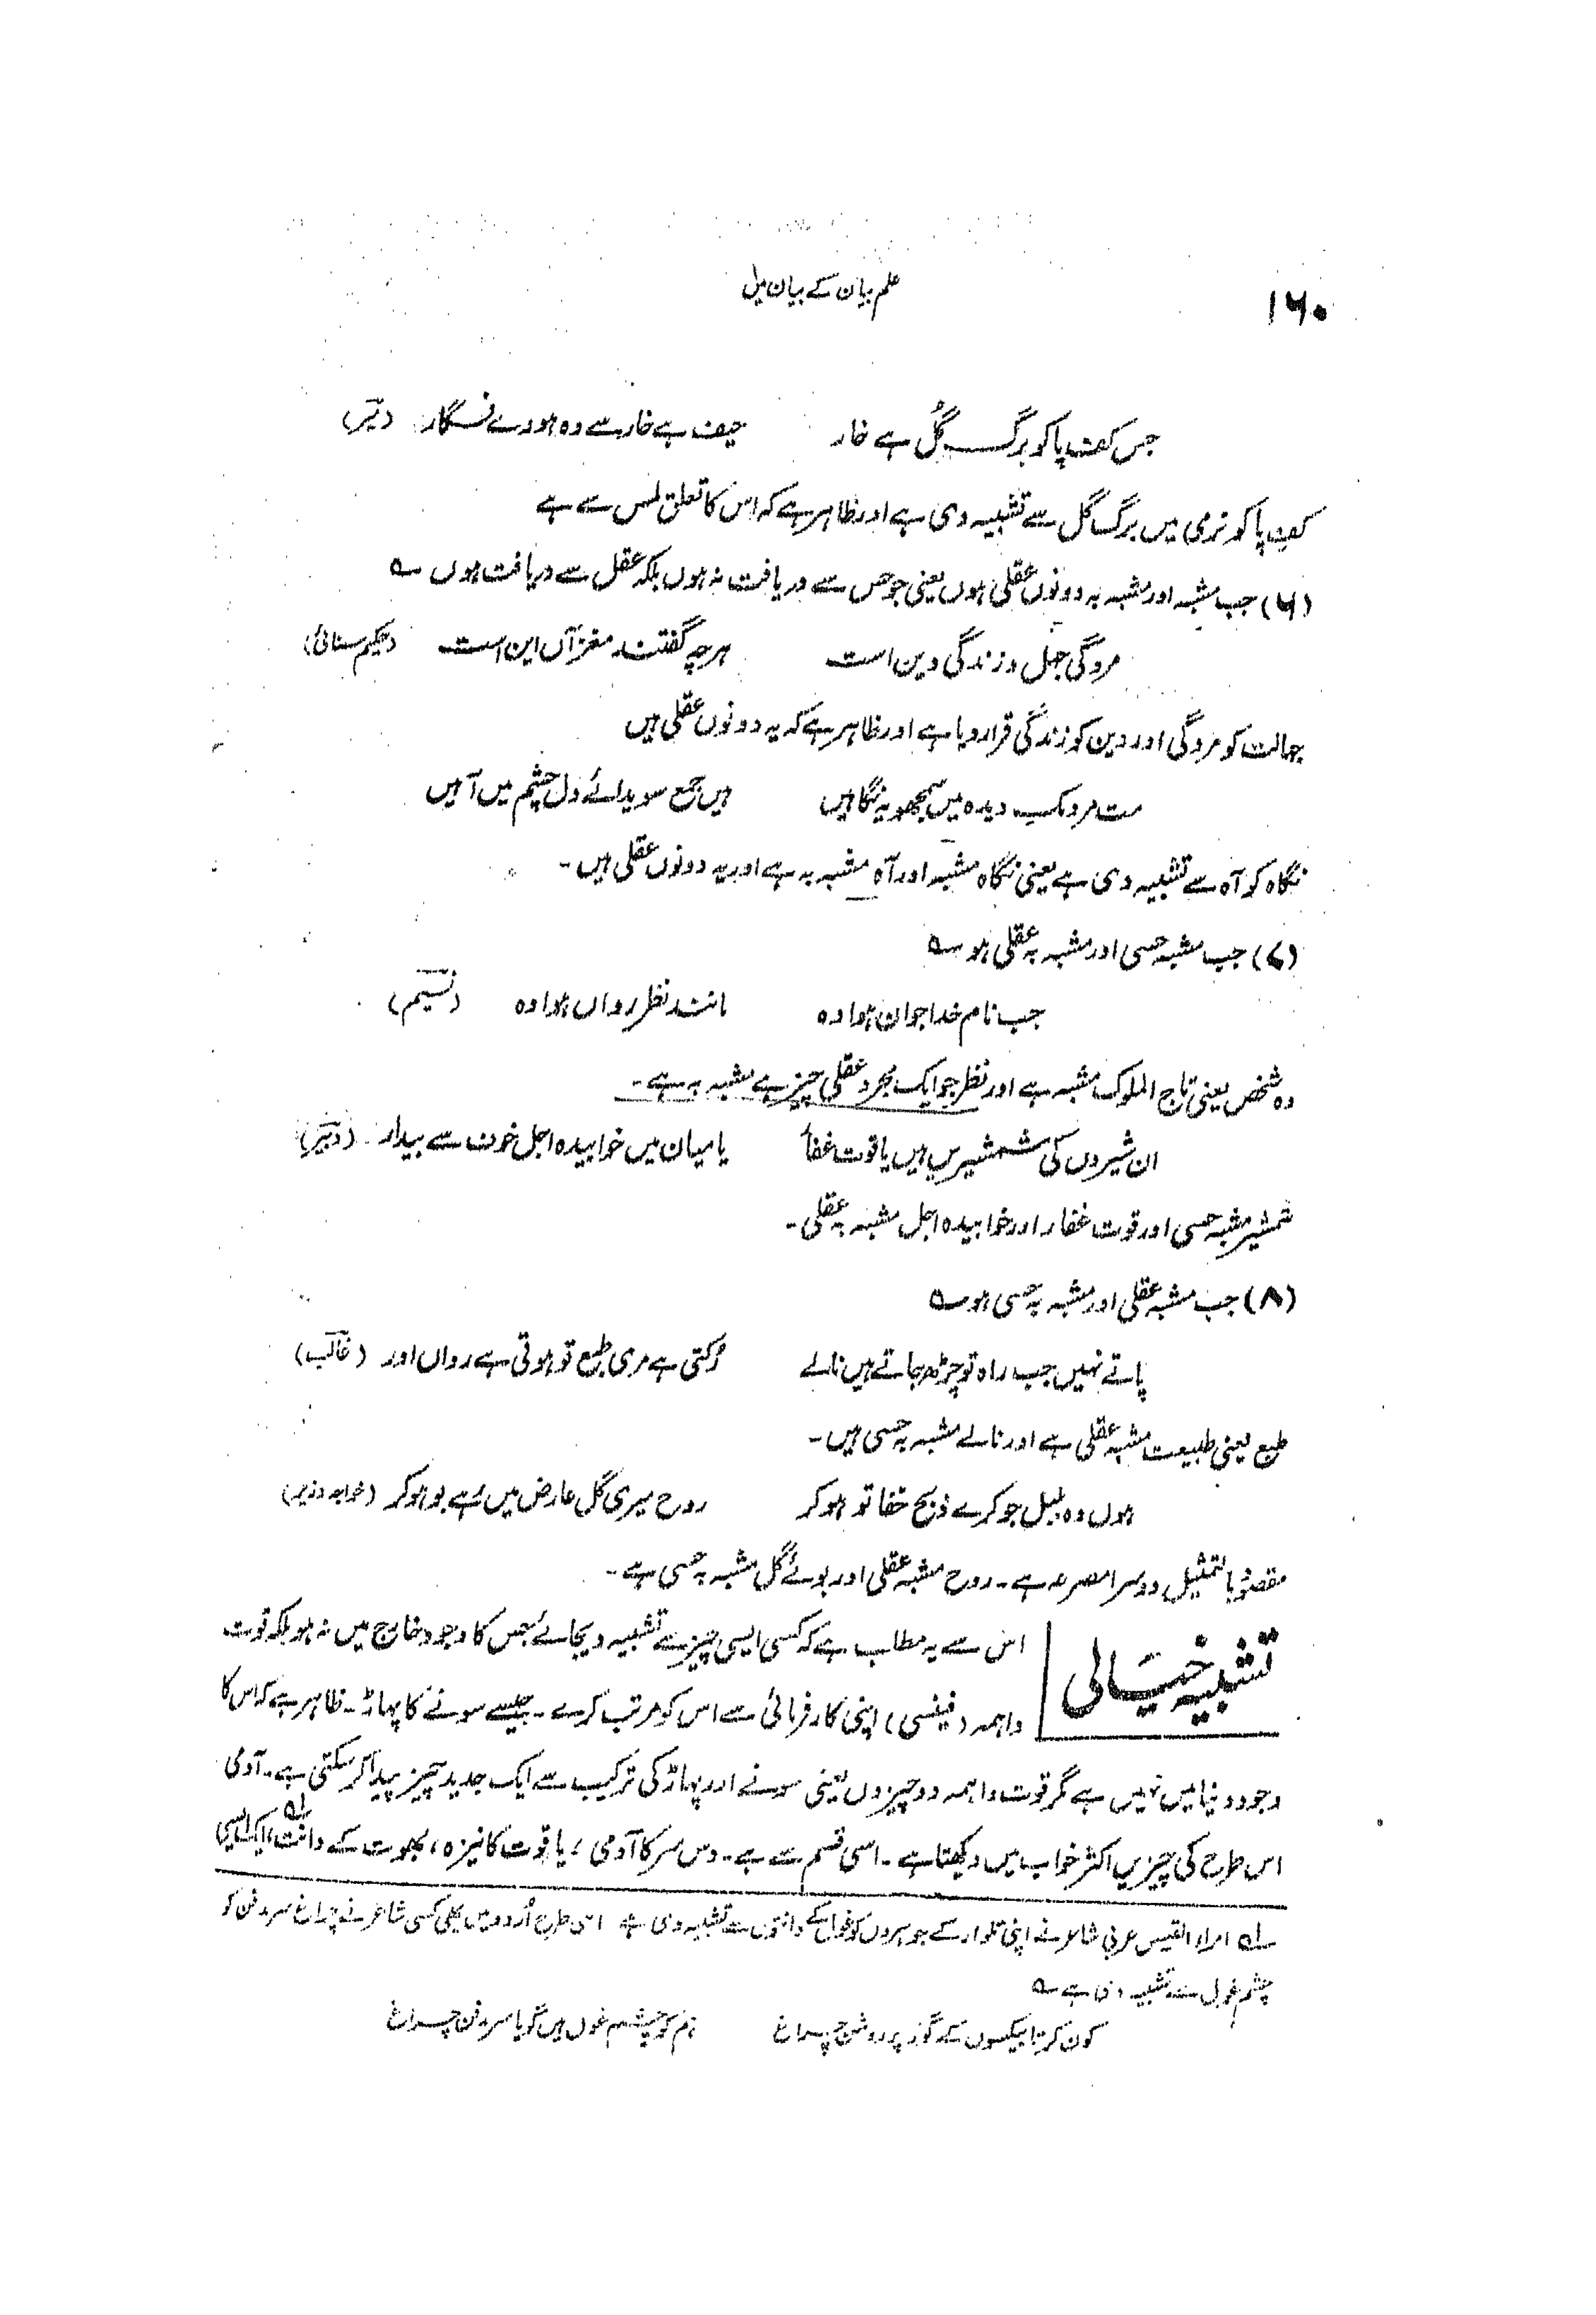 ۱۶۰
علم بیان کے بیان میں
جس کف پا کو برگ گُل ہے خار حیف ہے خار سے وہ ہووے فگار (میر)
کف پا کو نرمی میں برگ گل سے تشبیہ دی ہے اور ظاہر ہے کہ اس کا تعلق لمس سے ہے
(۶) جب مشبہ اور مشبہ بہ دونوں عقلی ہوں یعنی جو حس سے دریافت نہ ہوں بلکہ عقل سے دریافت ہوں ؎
مردگی جہل و زندگی دین است ہرچہ گفتند مغز آں این است (حکیم سنائی)
جہالت کو مردگی اور دین کو زندگی قرار دیا ہے اور ظاہر ہے کہ یہ دونوں عقلی ہیں
مت مردمک دیدہ میں سمجھو یہ نگاہیں ہیں جمع سویدائے دل چشم میں آہیں
نگاہ کو آہ سے تشبیہ دی ہے یعنی نگاہ مشبہ اور آہ مشبہ بہ ہے اور یہ دونوں عقلی ہیں۔
(۷) جب مشبہ حسی اور مشبہ بہ عقلی ہو ؎
جب نام خدا جوان ہوا وہ مانند نظر رواں ہوا وہ (نسیم)
وہ شخص یعنی تاج الملوک مشبہ ہے اور نظر جو ایک مجرد عقلی چیز ہے مشبہ بہ ہے۔
ان شیروں کی شمشیریں ہیں یا قوت غفار یا میان میں خوابیدہ اجل خوف سے بیدار (دبیر)
شمشیر مشبہ حسی اور قوت غفار اور خوابیدہ اجل مشبہ بہ عقلی۔
(۸) جب مشبہ عقلی اور مشبہ بہ حسی ہو ؎
پاتے نہیں جب راہ تو چڑھ جاتے ہیں نالے رُکتی ہے مری طبع تو ہوتی ہے رواں اور (غالب)
طبع یعنی طبیعت مشبہ عقلی ہے اور نالے مشبہ بہ حسی ہیں۔
ہوں وہ بلبل جو کرے ذبح خفا تو ہو کر روح میری گل عارض میں رہے بو ہو کر (خواجہ وزیر)
مقصود بالتمثیل دوسرا مصرعہ ہے۔ روح مشبہ عقلی اور بوئے گل مشبہ بہ حسی ہے۔
تشبیہ خیالی
اس سے یہ مطلب ہے کہ کسی ایسی چیز سے تشبیہ دیجائے جس کا وجود خارج میں نہ ہو بلکہ قوت
واہمہ (فینسی) اپنی کارفرمائی سے اس کو مرتب کرے۔ جیسے سونے کا پہاڑ۔ ظاہر ہے کہ اس کا
وجود دنیا میں نہیں ہے مگر قوت واہمہ دو چیزوں یعنی سونے اور پہاڑ کی ترکیب سے ایک جدید چیز پیدا کر سکتی ہے۔ آدمی
اس طرح کی چیزیں اکثر خواب میں دیکھتا ہے۔ اسی قسم سے ہے۔ دس سر کا آدمی، یاقوت کا نیزہ، بھوت کے دانت، ایک ایسی
؎ امراء القیس عربی شاعر نے اپنی تلوار کے جوہروں کو غول کے دانتوں سے تشبیہ دی ہے اسی طرح اُردو میں بھی کسی شاعر نے چراغ سر مدفن کو
چشم غول سے تشبیہ دی ہے ؎
کون کرتا بیکسوں کے گور پر روشن چراغ ہم کو چشم غول ہیں گویا سر مدفن چراغ